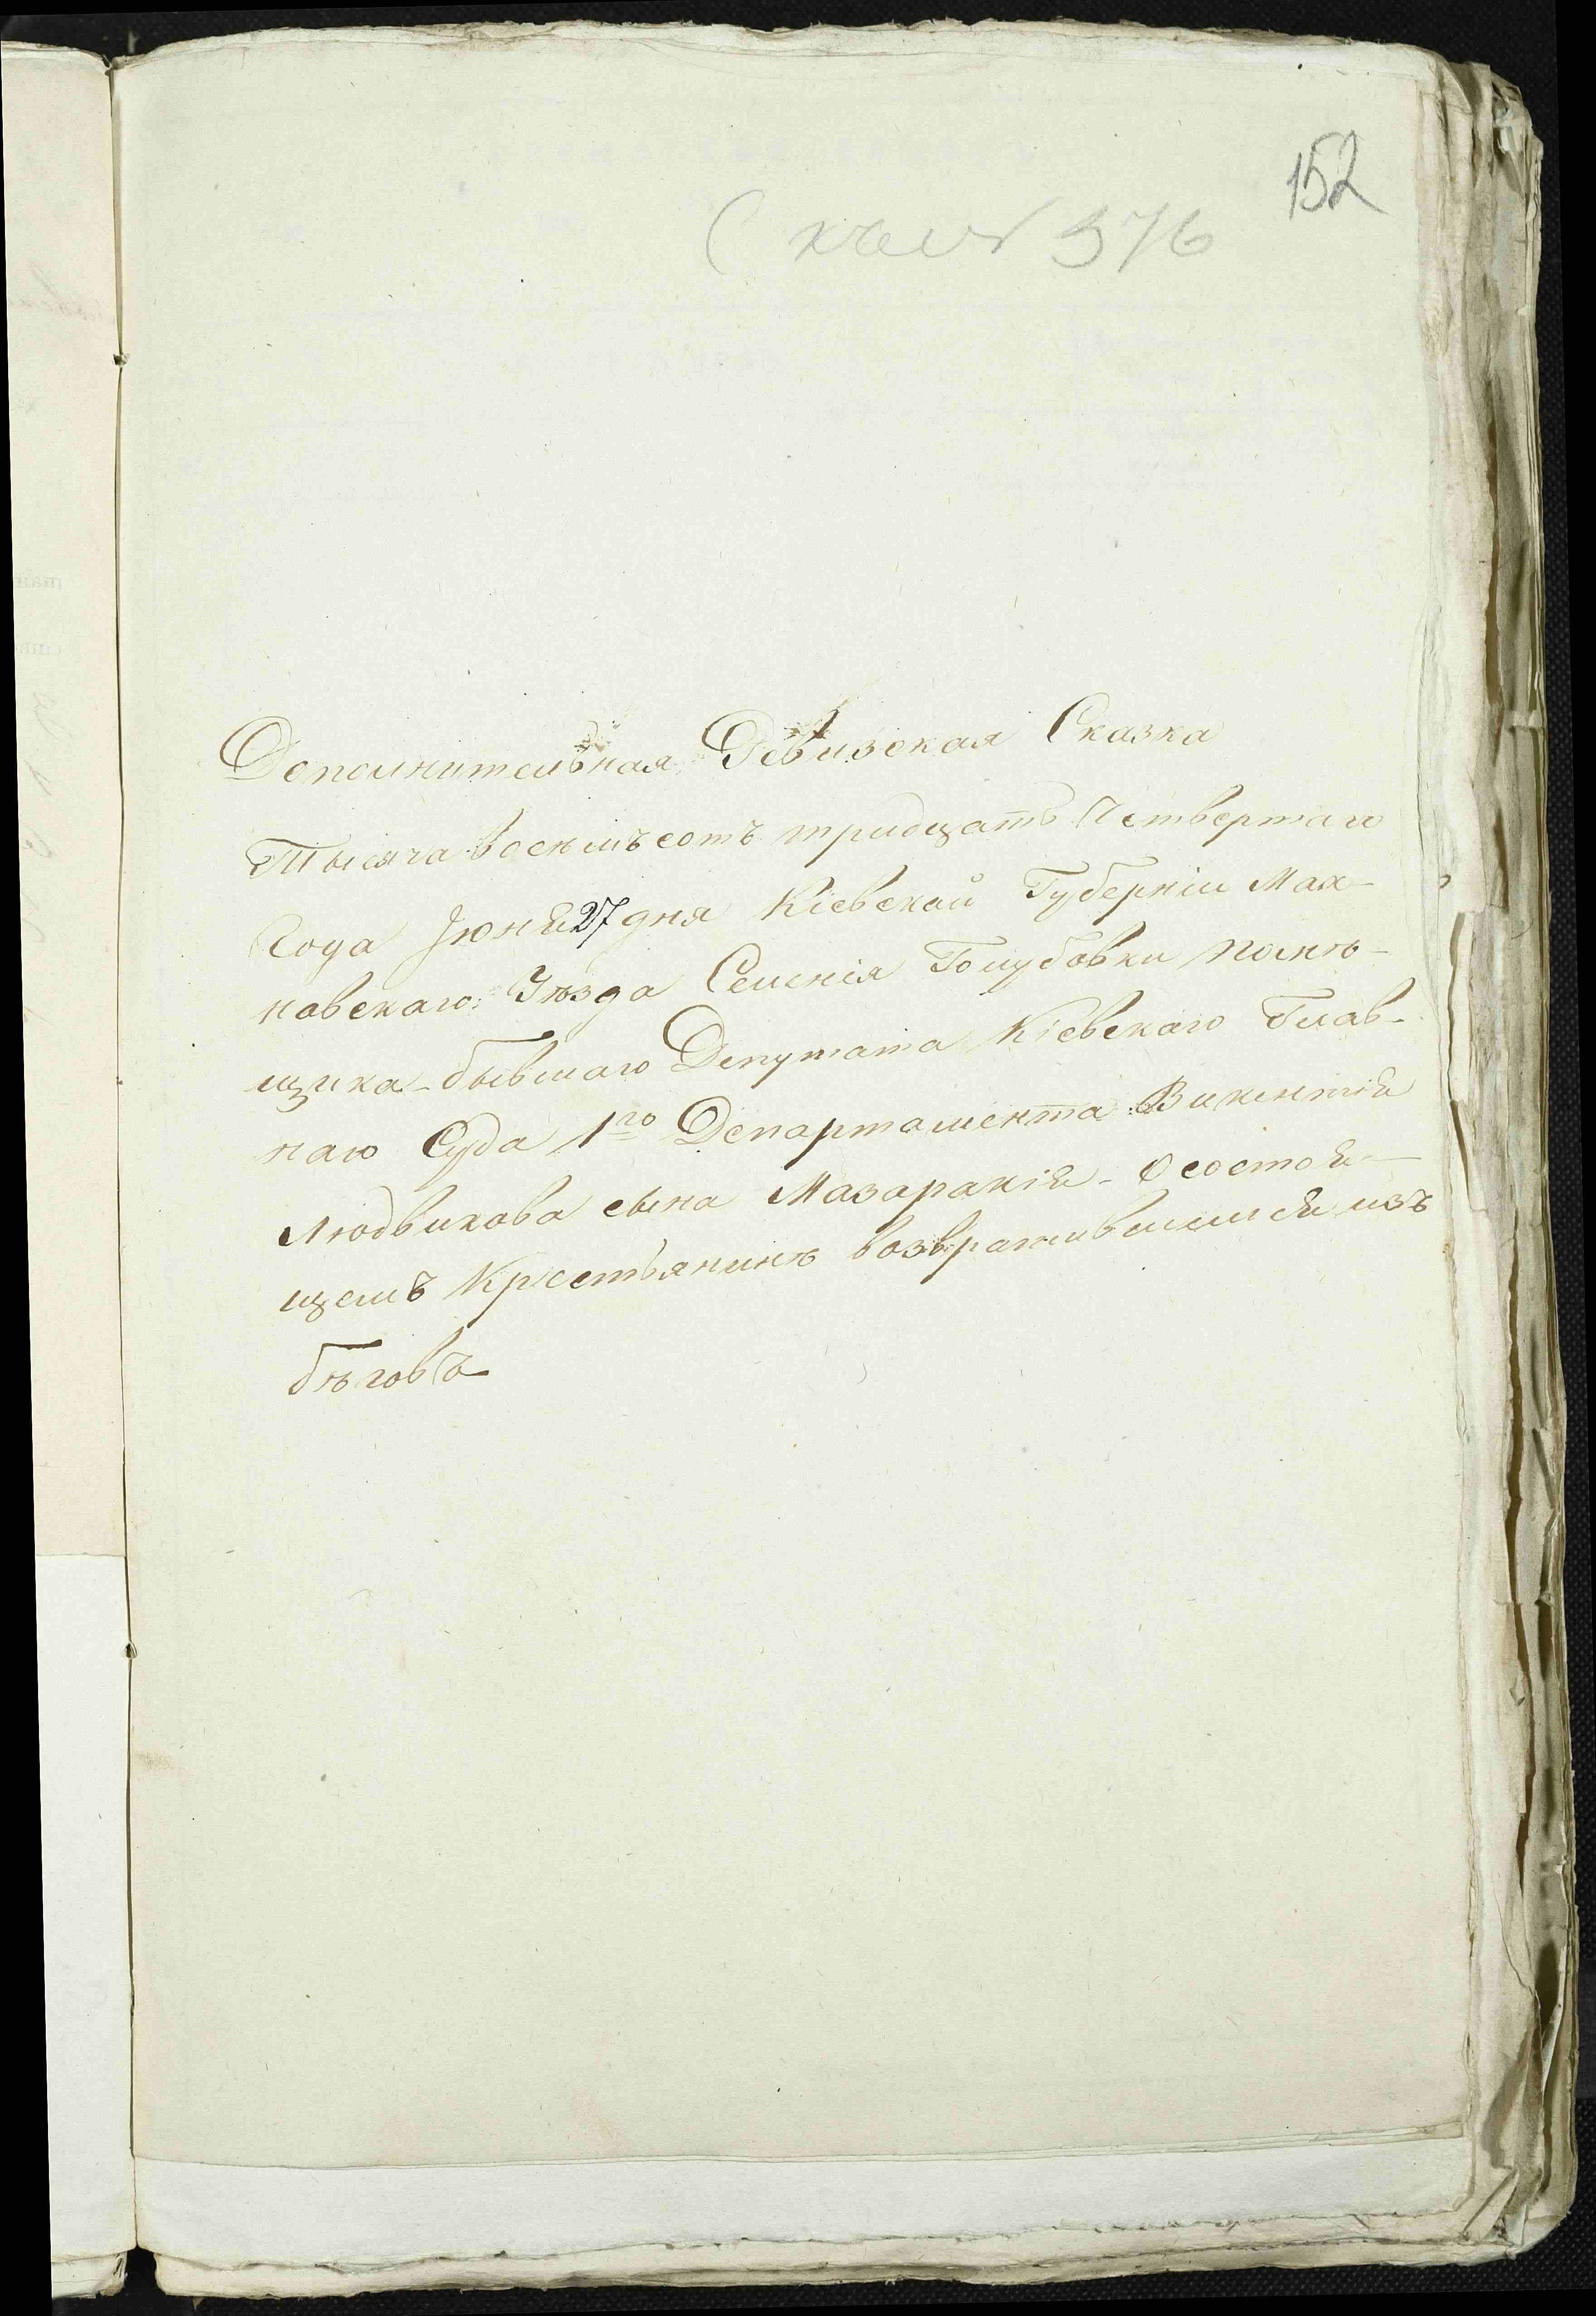 152
576
Дополнительная Ревизская Сказка
Тысяча восемъ сотъ тридцать Четвертаго
Года Іюня 27 дня Кіевской Губерніи Мах-
новскаго Уѣзда Селенія Голубовки помѣ-
щика бывшаго Депутата Кіевскаго Глав-
наго Суда 1го Департамента Викентія
Людвикова сына Мазаракія О состоя-
щемъ Крестьянинѣ возвратившимся изъ
бѣговъ